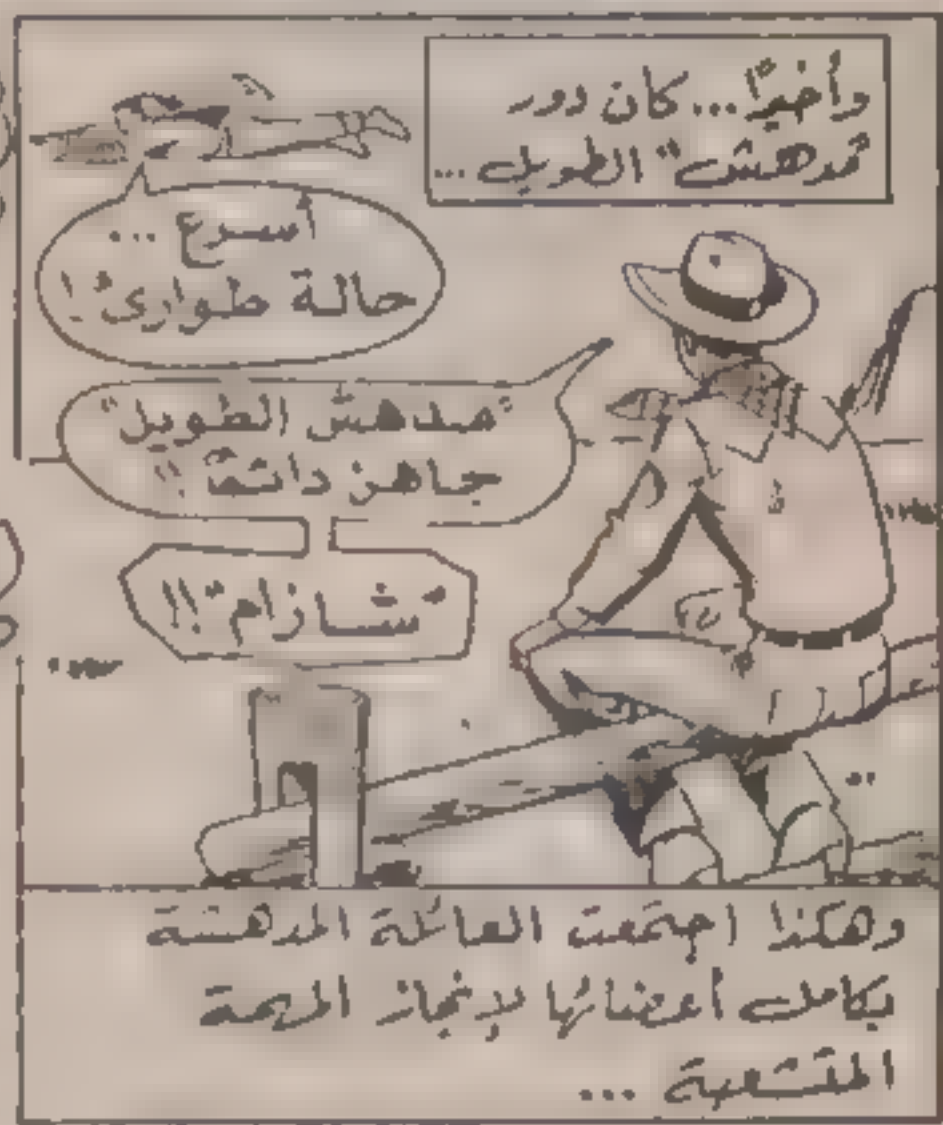 وأخيرًا... كان دور
"مدهش" الطويل...
أسرع...
حالة طوارئ!
"مدهش الطويل"
جاهز دائمًا!
"شازام"!!
وهكذا اجتمعت العائلة المدهشة
بكامل أعضائها لإنجاز المهمة
المتشعبة...